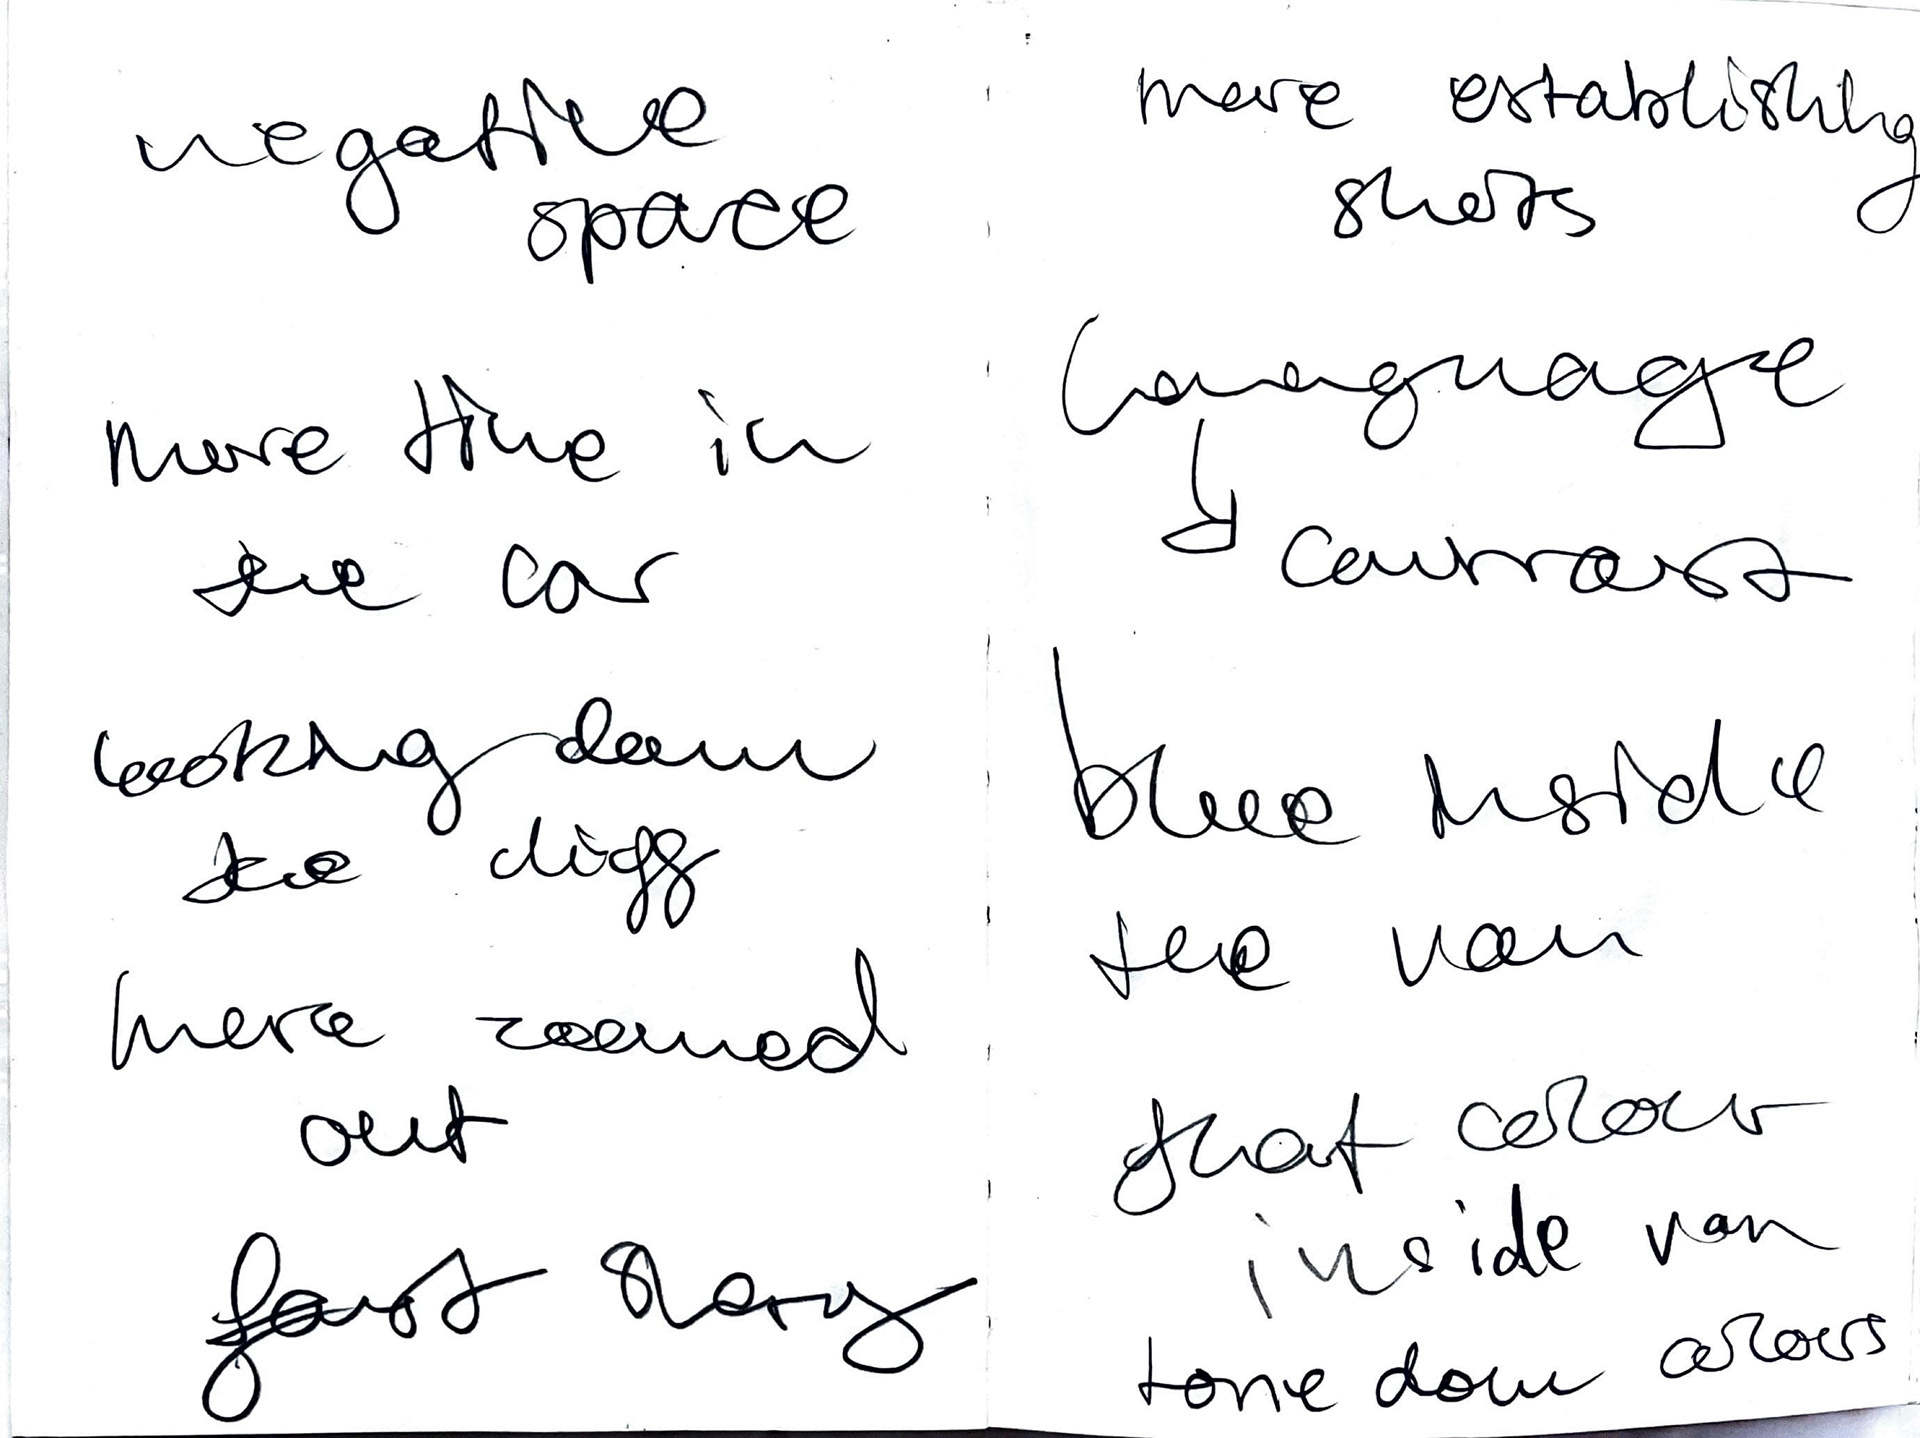 negative
space
more time in
the car
looking down
the cliff
more zoomed
out
fast story
more establishing
shots
language
contrast
blue inside
the van
that colour
inside van
tone down colours